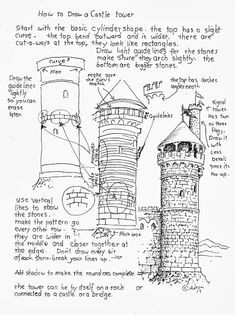 How to Draw a Castle tower
Start with the basic cylinder shape. the top has a slight
curve. the top bend outward and is wider. there are
cut-a ways at the top, they look like rectangles.
Draw light guidelines for the stones
make sure they arch slightly. the
bottom are bigger stones.
Draw the
guide lines
lightly
so you can
erase
later.
curve
make sure
the curves
match
the top has, arches
underneath
Guidelines
Signal
tower
Has two
or three
flags,
Draw it
with
Less
Detail
since it's
far away
Rock base
Use Vertical
lines to show
the stones.
make the pattern go
every other row.
they are wider in
the middle and closer together at
the edges. Don't draw every bit
of each stone - break your lines up.
Add shadow to make the roundness complete.
the tower can be by itself on a rock or
connected to a castle or a bridge.